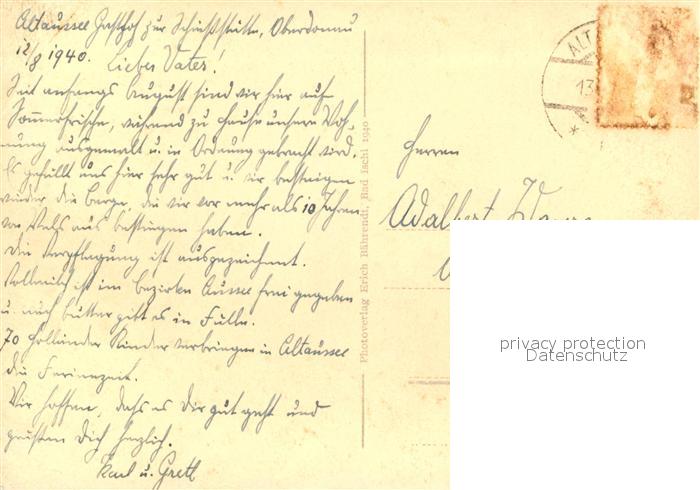 Altaussee Gasthof zur Schießstätte, Oberdonau
12/8 1940. Lieber Vater!
Seit anfangs August sind wir hier auf
Sommerfrische, während zu Hause unsere Woh-
nung ausgemalt u. in Ordnung gebracht wird.
Es gefällt uns hier sehr gut u. wir besteigen
wieder die Berge, die wir vor mehr als 10 Jahren
von aus bestiegen haben.
Die Verpflegung ist ausgezeichnet.
Vollmilch ist im Bezirke Aussee frei gegeben
u. auch Butter gibt es in Fülle.
70 Holländer Kinder verbringen in Altaussee
die Ferienzeit.
Wir hoffen, dass es Dir gut geht und
grüßen Dich herzlich.
Karl u. Gretl
Photoverlag Erich Bährendt, Bad Ischl 1940
ALT
13
Herrn
Adalbert
privacy protection
Datenschutz